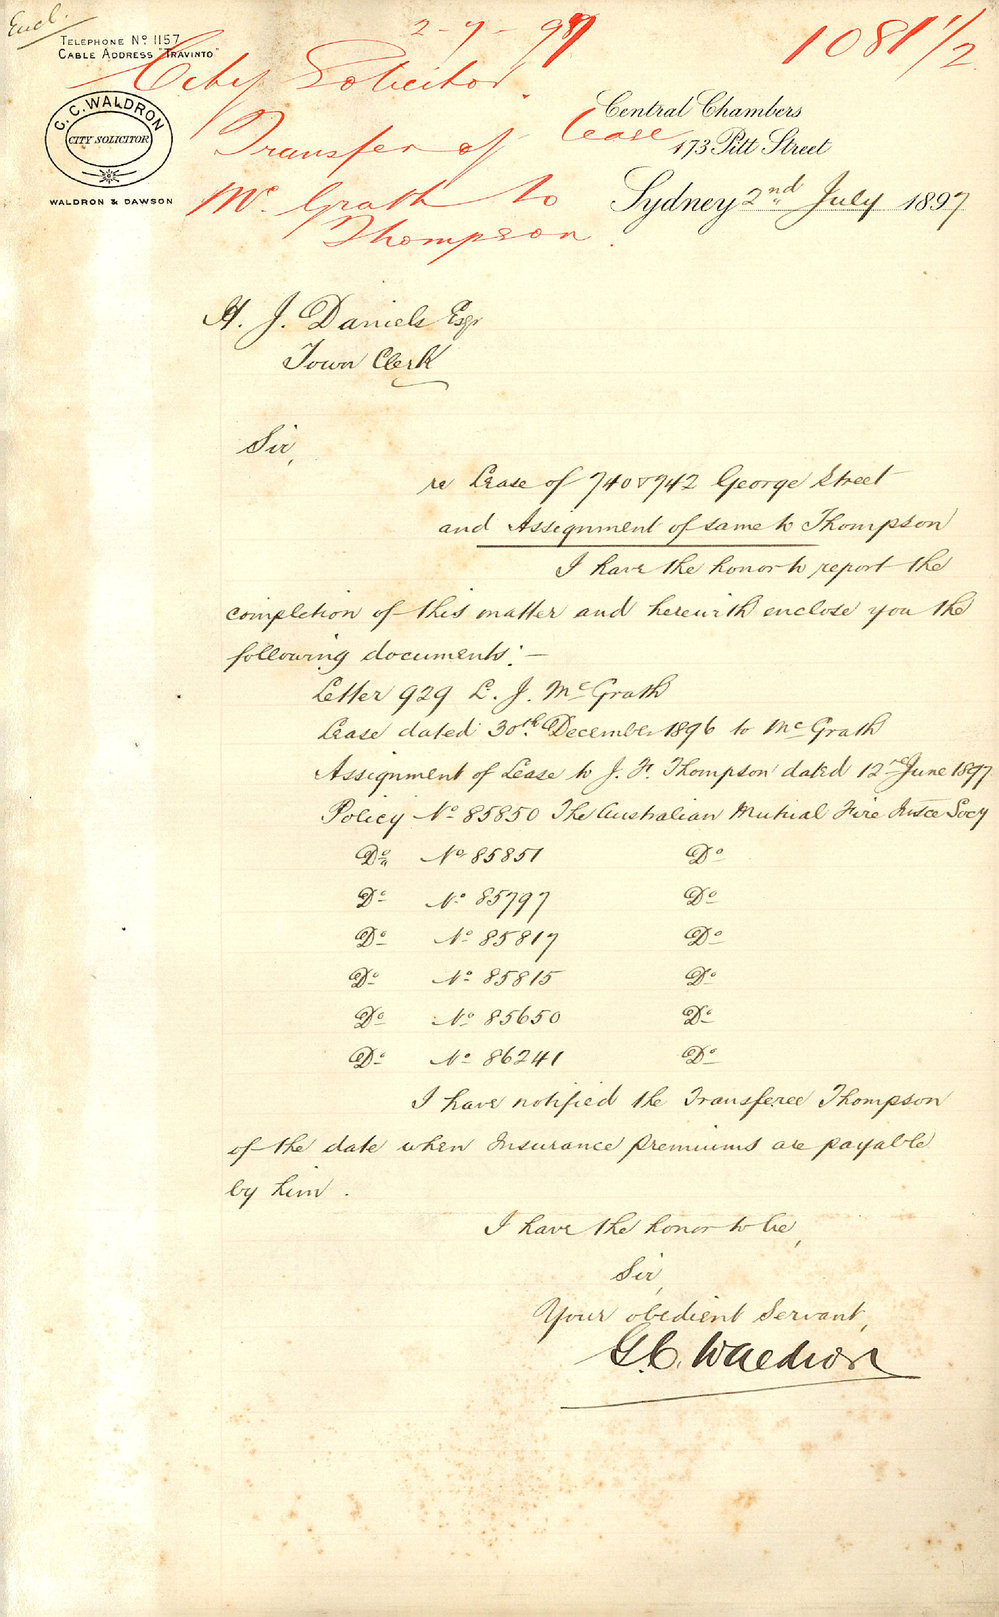 Encl.
2-7-97
1081 1/2
TELEPHONE No 1157
CABLE ADDRESS "TRAVINTO"
City Solicitor.
Transfer of Lease
McGrath to
Thompson.
G. C. WALDRON
CITY SOLICITOR
WALDRON & DAWSON
Central Chambers
173 Pitt Street
Sydney 2nd July 1897
H. J. Daniels Esqr
Town Clerk
Sir,
re Lease of 740 & 742 George Street
and Assignment of same to Thompson
I have the honor to report the
completion of this matter and herewith enclose you the
following documents:—
Letter 929 L. J. McGrath
Lease dated 30th December 1896 to McGrath
Assignment of Lease to J. H. Thompson dated 12th June 1897
Policy No 85850 The Australian Mutual Fire Insce Socy
Do No 85851 Do
Do No 85797 Do
Do No 85817 Do
Do No 85815 Do
Do No 85650 Do
Do No 86241 Do
I have notified the Transferee Thompson
of the date when Insurance premiums are payable
by him.
I have the honor to be,
Sir,
Your obedient Servant,
G. C. Waldron